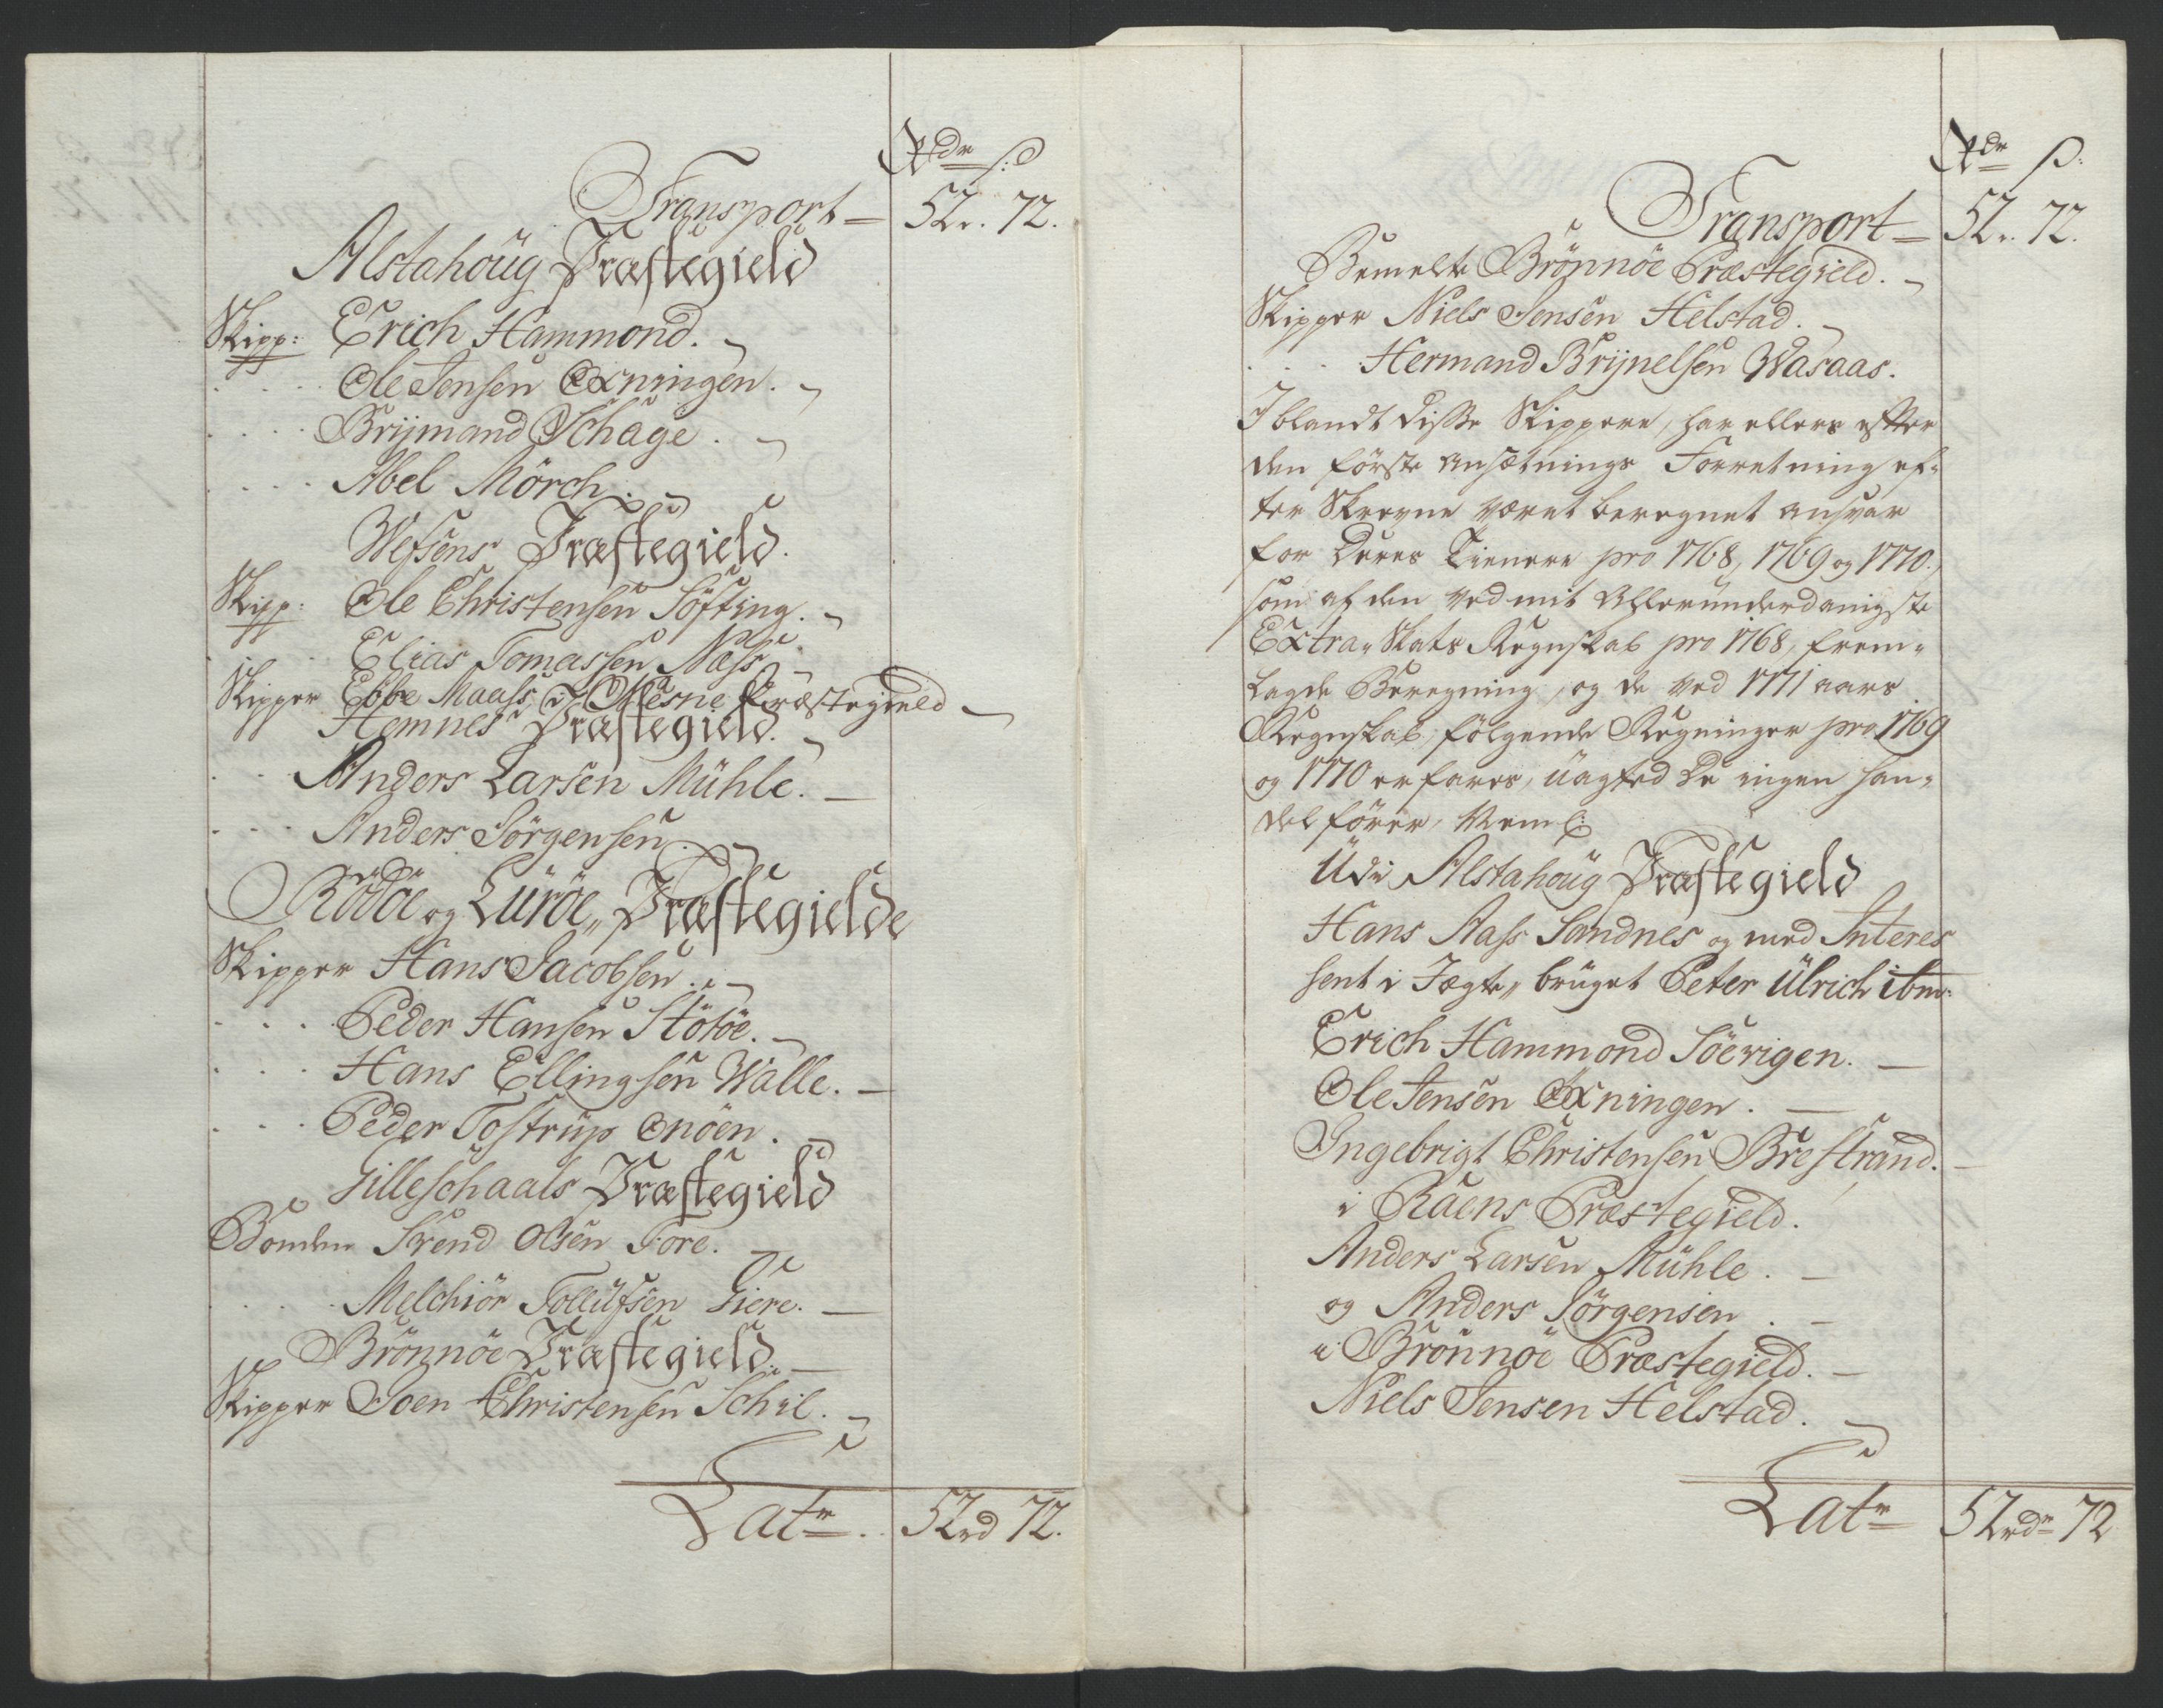 Rdr ß
Transport = 52. 72.
Alstahoug Præstegield
Skipp: Erich Hammond.
Ole Jensen Oxningen.
Brijmand Schage.
Abel Mörch.
Wefsens Præstegield.
Skipp: Ole Christensen Söfting.
Elias Tomassen Næss
Skipper Ebbe Maass i Nesne Præstegield
Hemnes Præstegield.
Anders Larsen Mühle.
Anders Jörgensen.
Rödöe og Luröe Præstegielde
Skipper Hans Jacobsen.
Peder Hansen Stötöe.
Hans Ellingsen Walle.
Peder Tostrup Onöen.
Gilleschaals Præstegield
Bonden Svend Olsen Fore.
Melchiör Tollüfsen Giere.
Brönnöe Præstegield.
Skipper Joen Christensen Schil.
Latr. 52rd 72.
Rdr ß:
Transport = 52. 72.
Bemelte Brönnöe Præstegield.
Skipper Niels Jensen Helstad.
Hermand Brijnelsen Wasaas.
Iblandt disse Skippere, har ellers efter
den förste Ansætnings Forretning ef-
ter Skrevne været beregnet ansvar
for Deres Tienere pro 1768, 1769 og 1770.,
som af den ved mit Allerunderdanigste
Extra Skats Regnskab pro 1768, frem-
lagde Beregning, og de ved 1771 aars
Regnskab, fölgende Regninger pro 1769
og 1770 erfares, uagted De ingen han-
del förer, Neml:
Udi Alstahoug Præstegield
Hans Aass Sandnes og med Interes
sent i Jægte bruget Peter Ulrich ibm.
Erich Hammond Söevigen.
Ole Jensen Oxningen.
Ingebrigt Christensen Brestrand.
i Raens Præstegield.
Anders Larsen Mühle.
og Anders Jörgensen.
i Brönnöe Præstegield.
Niels Jensen Helstad.
Latr 52rdr 72